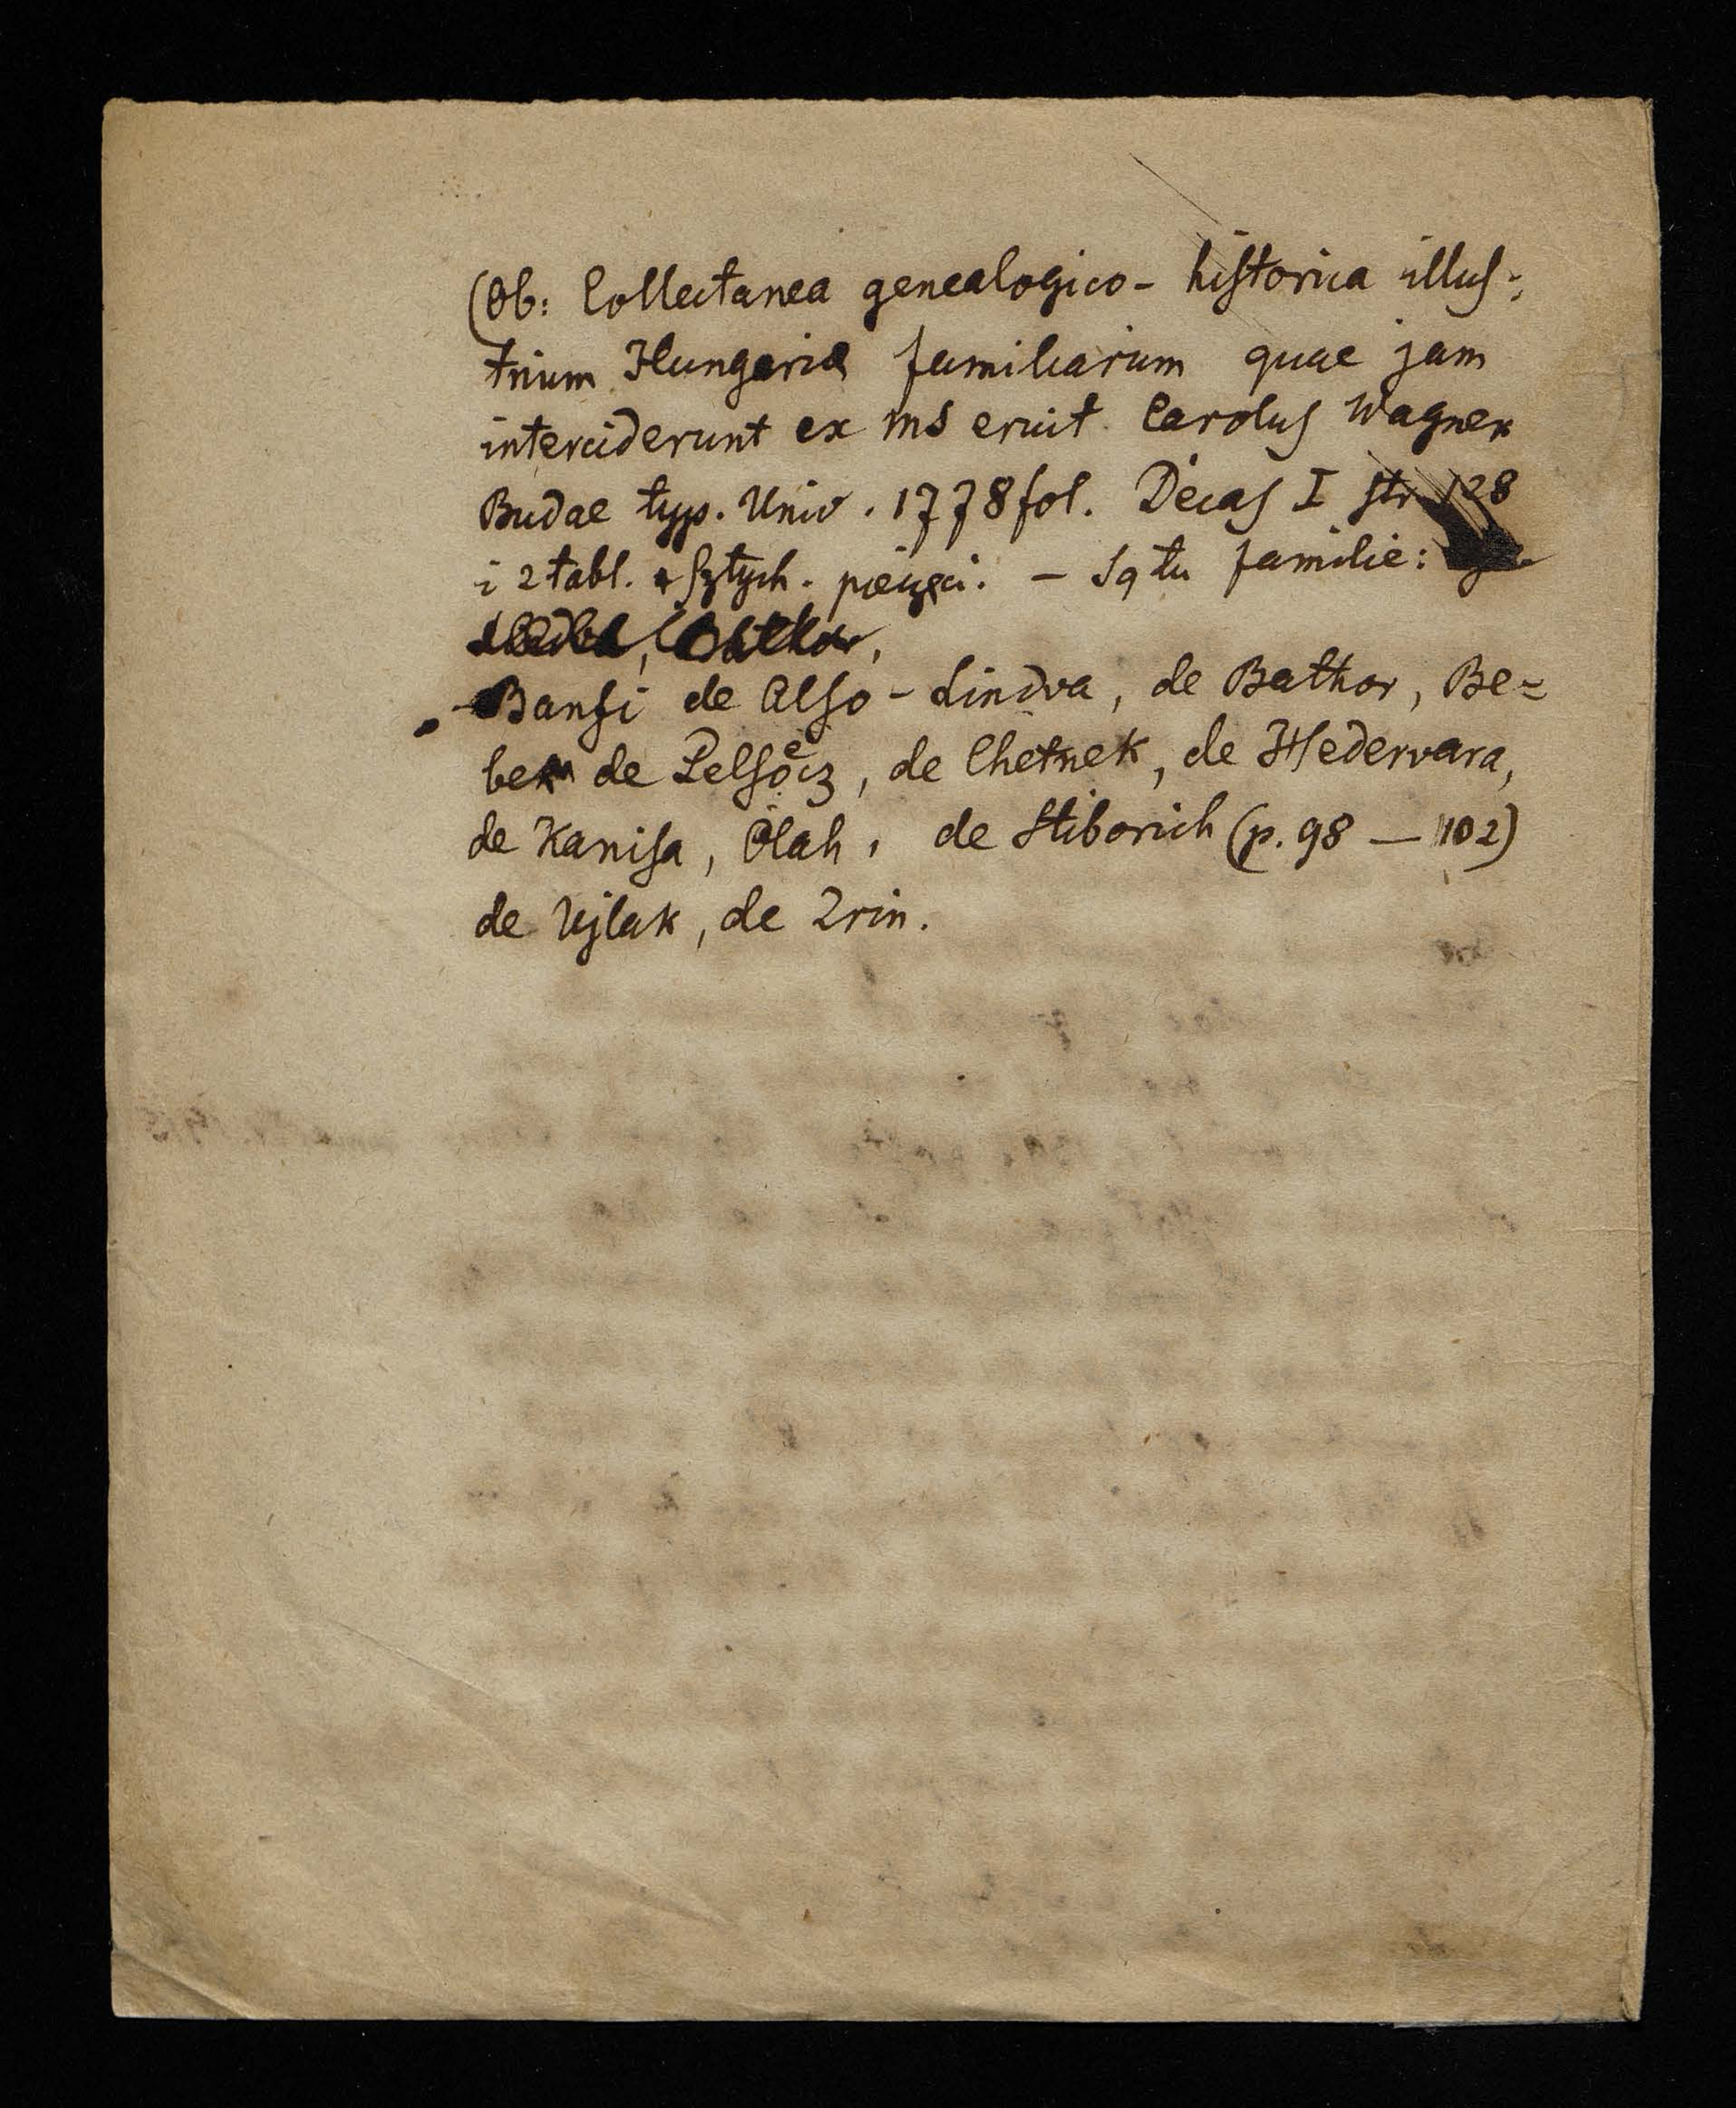 (Ob: Collectanea genealogico-historica illus-
trium Hungariae familiarum quae jam
interciderunt ex ms eruit Carolus Wagner
Budae typ. Univ. 1778 fol. Decas I str 128
i 2 tabl. sztych. pieczęci. – Są tu familie:
Banfi de Also-Lindva, de Bathor, Be=
bek de Pelsőcz, de Chetnek, de Hedervara,
de Kanisa, Olah, de Stiborich (p. 98 — 102)
de Ujlak, de Zrin.